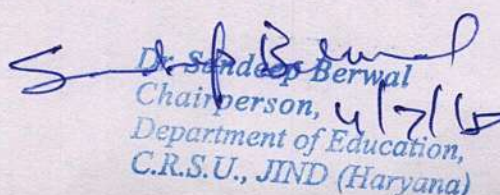 Dr. Sandeep Berwal
Chairperson,
Department of Education,
C.R.S.U., JIND (Haryana)